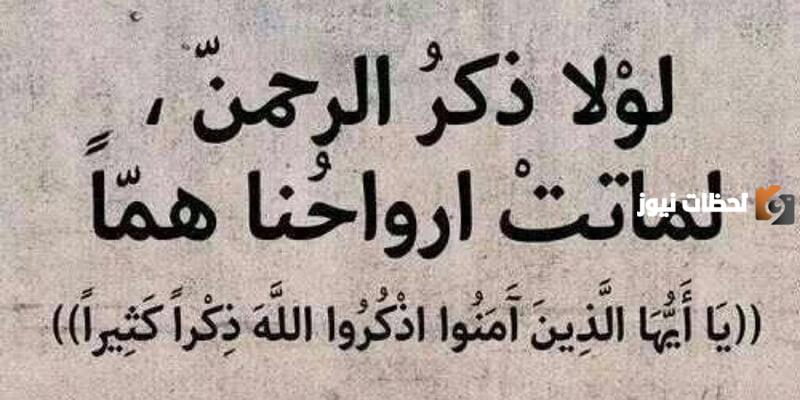 لوْلا ذكرُ الرحمنّ ،
لماتتْ ارواحُنا همّاً
لحظات نيوز
((يَا أَيُّهَا الَّذِينَ آَمَنُوا اذْكُرُوا اللَّهَ ذِكْراً كَثِيراً))